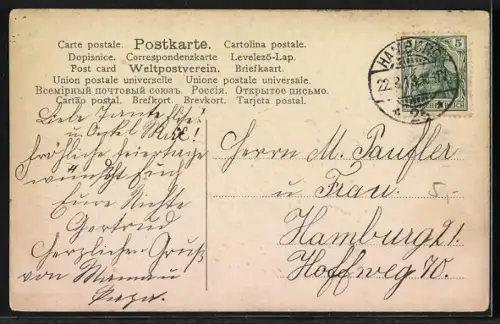 Carte postale. Postkarte. Cartolina postale.
Dopisnice. Correspondenzkarte Levelező-Lap.
Post card Weltpostverein. Briefkaart.
Union postale universelle Unione postale universale.
Всемірный почтовый союзъ. Россія. Открытое письмо.
Cartão postal. Brefkort. Brevkort. Tarjeta postal.
HAMBURG
25
5
Liebe Tante
u Onkel Max!
fröhliche Feiertage
wünscht Euch
Eure Nichte
Gertrud
Herzlichen Gruß
von Mama u
Papa.
Herrn M. Paufler
u Frau.
Hamburg 21.
Hoffweg 70.
5,-